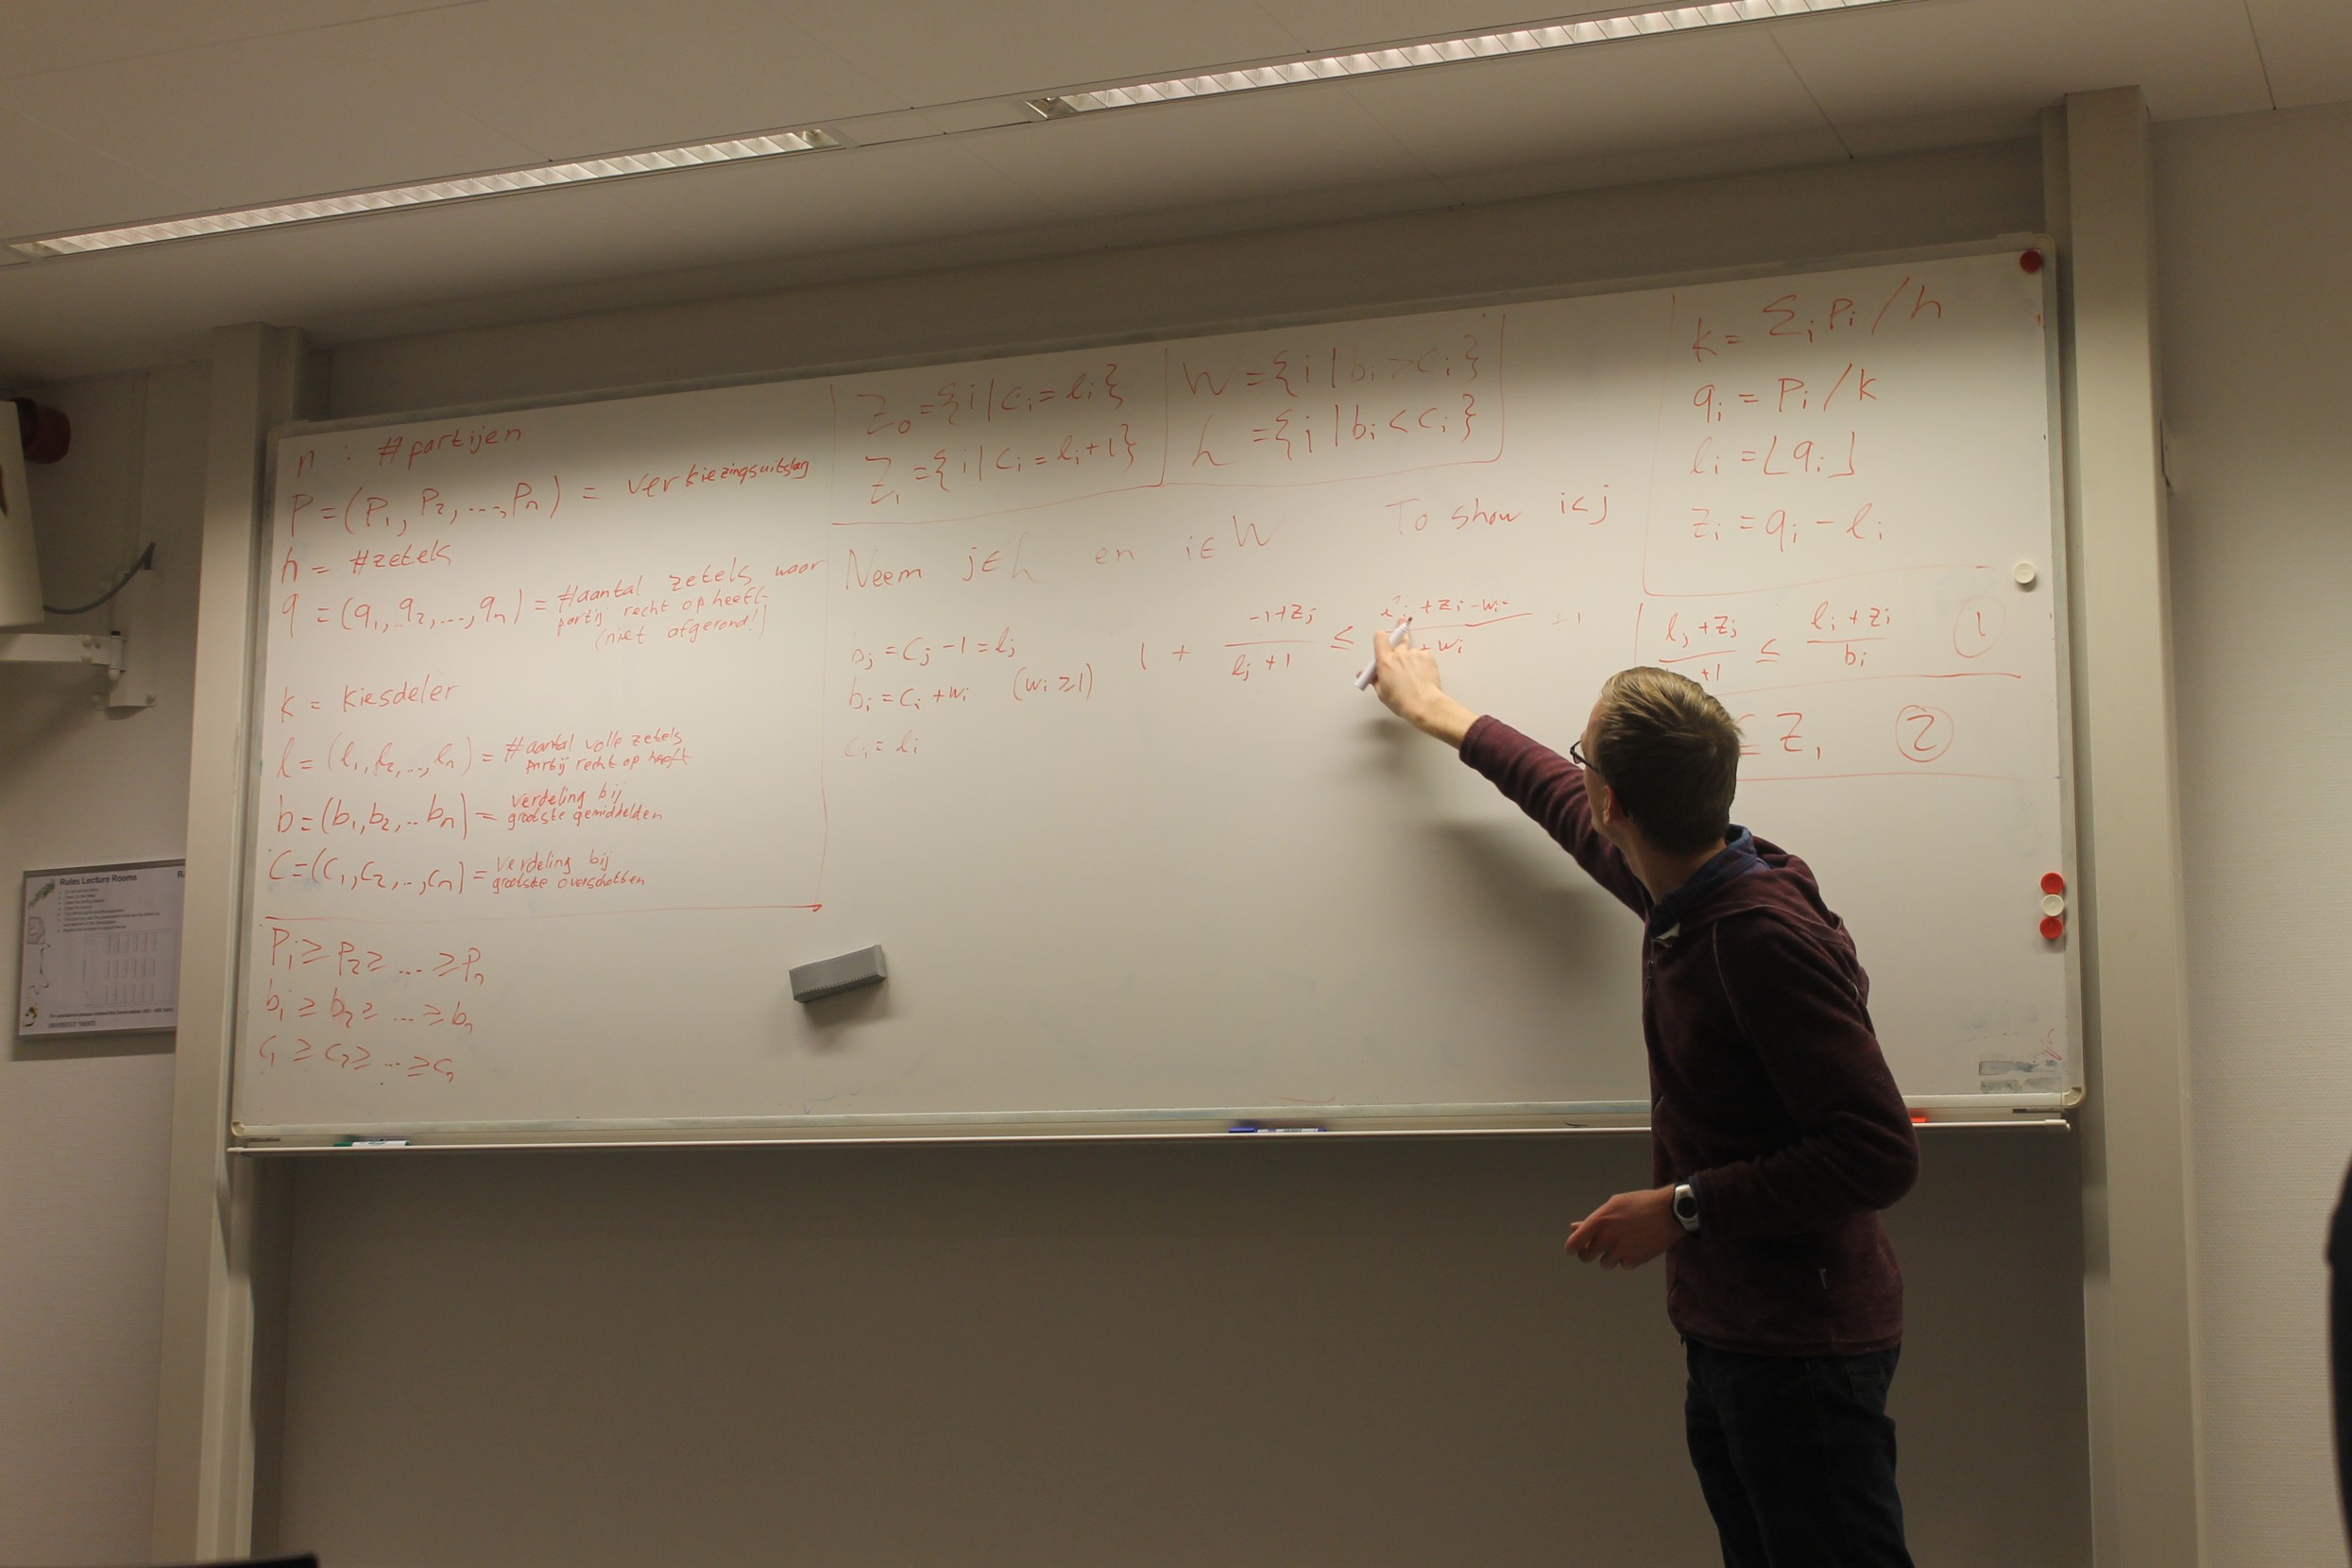 n : #partijen
p = (p₁, p₂, ..., pₙ) = verkiezingsuitslag
h = #zetels
q = (q₁, q₂, ..., qₙ) = #aantal zetels waar
partij recht op heeft
(niet afgerond!)
k = kiesdeler
l = (l₁, l₂, ..., lₙ) = #aantal volle zetels
partij recht op heeft
b = (b₁, b₂, .. bₙ) = verdeling bij
grootste gemiddelden
C = (c₁, c₂, .., cₙ) = verdeling bij
grootste overschotten
p₁ ≥ p₂ ≥ ... ≥ pₙ
b₁ ≥ b₂ ≥ ... ≥ bₙ
c₁ ≥ c₂ ≥ ... ≥ cₙ
Z₀ = {i | cᵢ = lᵢ}
Z₁ = {i | cᵢ = lᵢ + 1}
W = {i | bᵢ > cᵢ}
h = {i | bᵢ < cᵢ}
k = Σᵢ pᵢ / h
qᵢ = pᵢ / k
lᵢ = ⌊qᵢ⌋
zᵢ = qᵢ - lᵢ
Neem j ∈ h en i ∈ W To show i < j
bⱼ = cⱼ - 1 = lⱼ
bᵢ = cᵢ + wᵢ (wᵢ ≥ 1)
cᵢ = lᵢ
1 + (-1 + zⱼ) / (lⱼ + 1) ≤ + zᵢ - wᵢ + wᵢ + 1
lⱼ + zⱼ / + 1 ≤ (lᵢ + zᵢ) / bᵢ ①
Z₁ ②
Rules Lecture Rooms
UNIVERSITEIT TWENTE